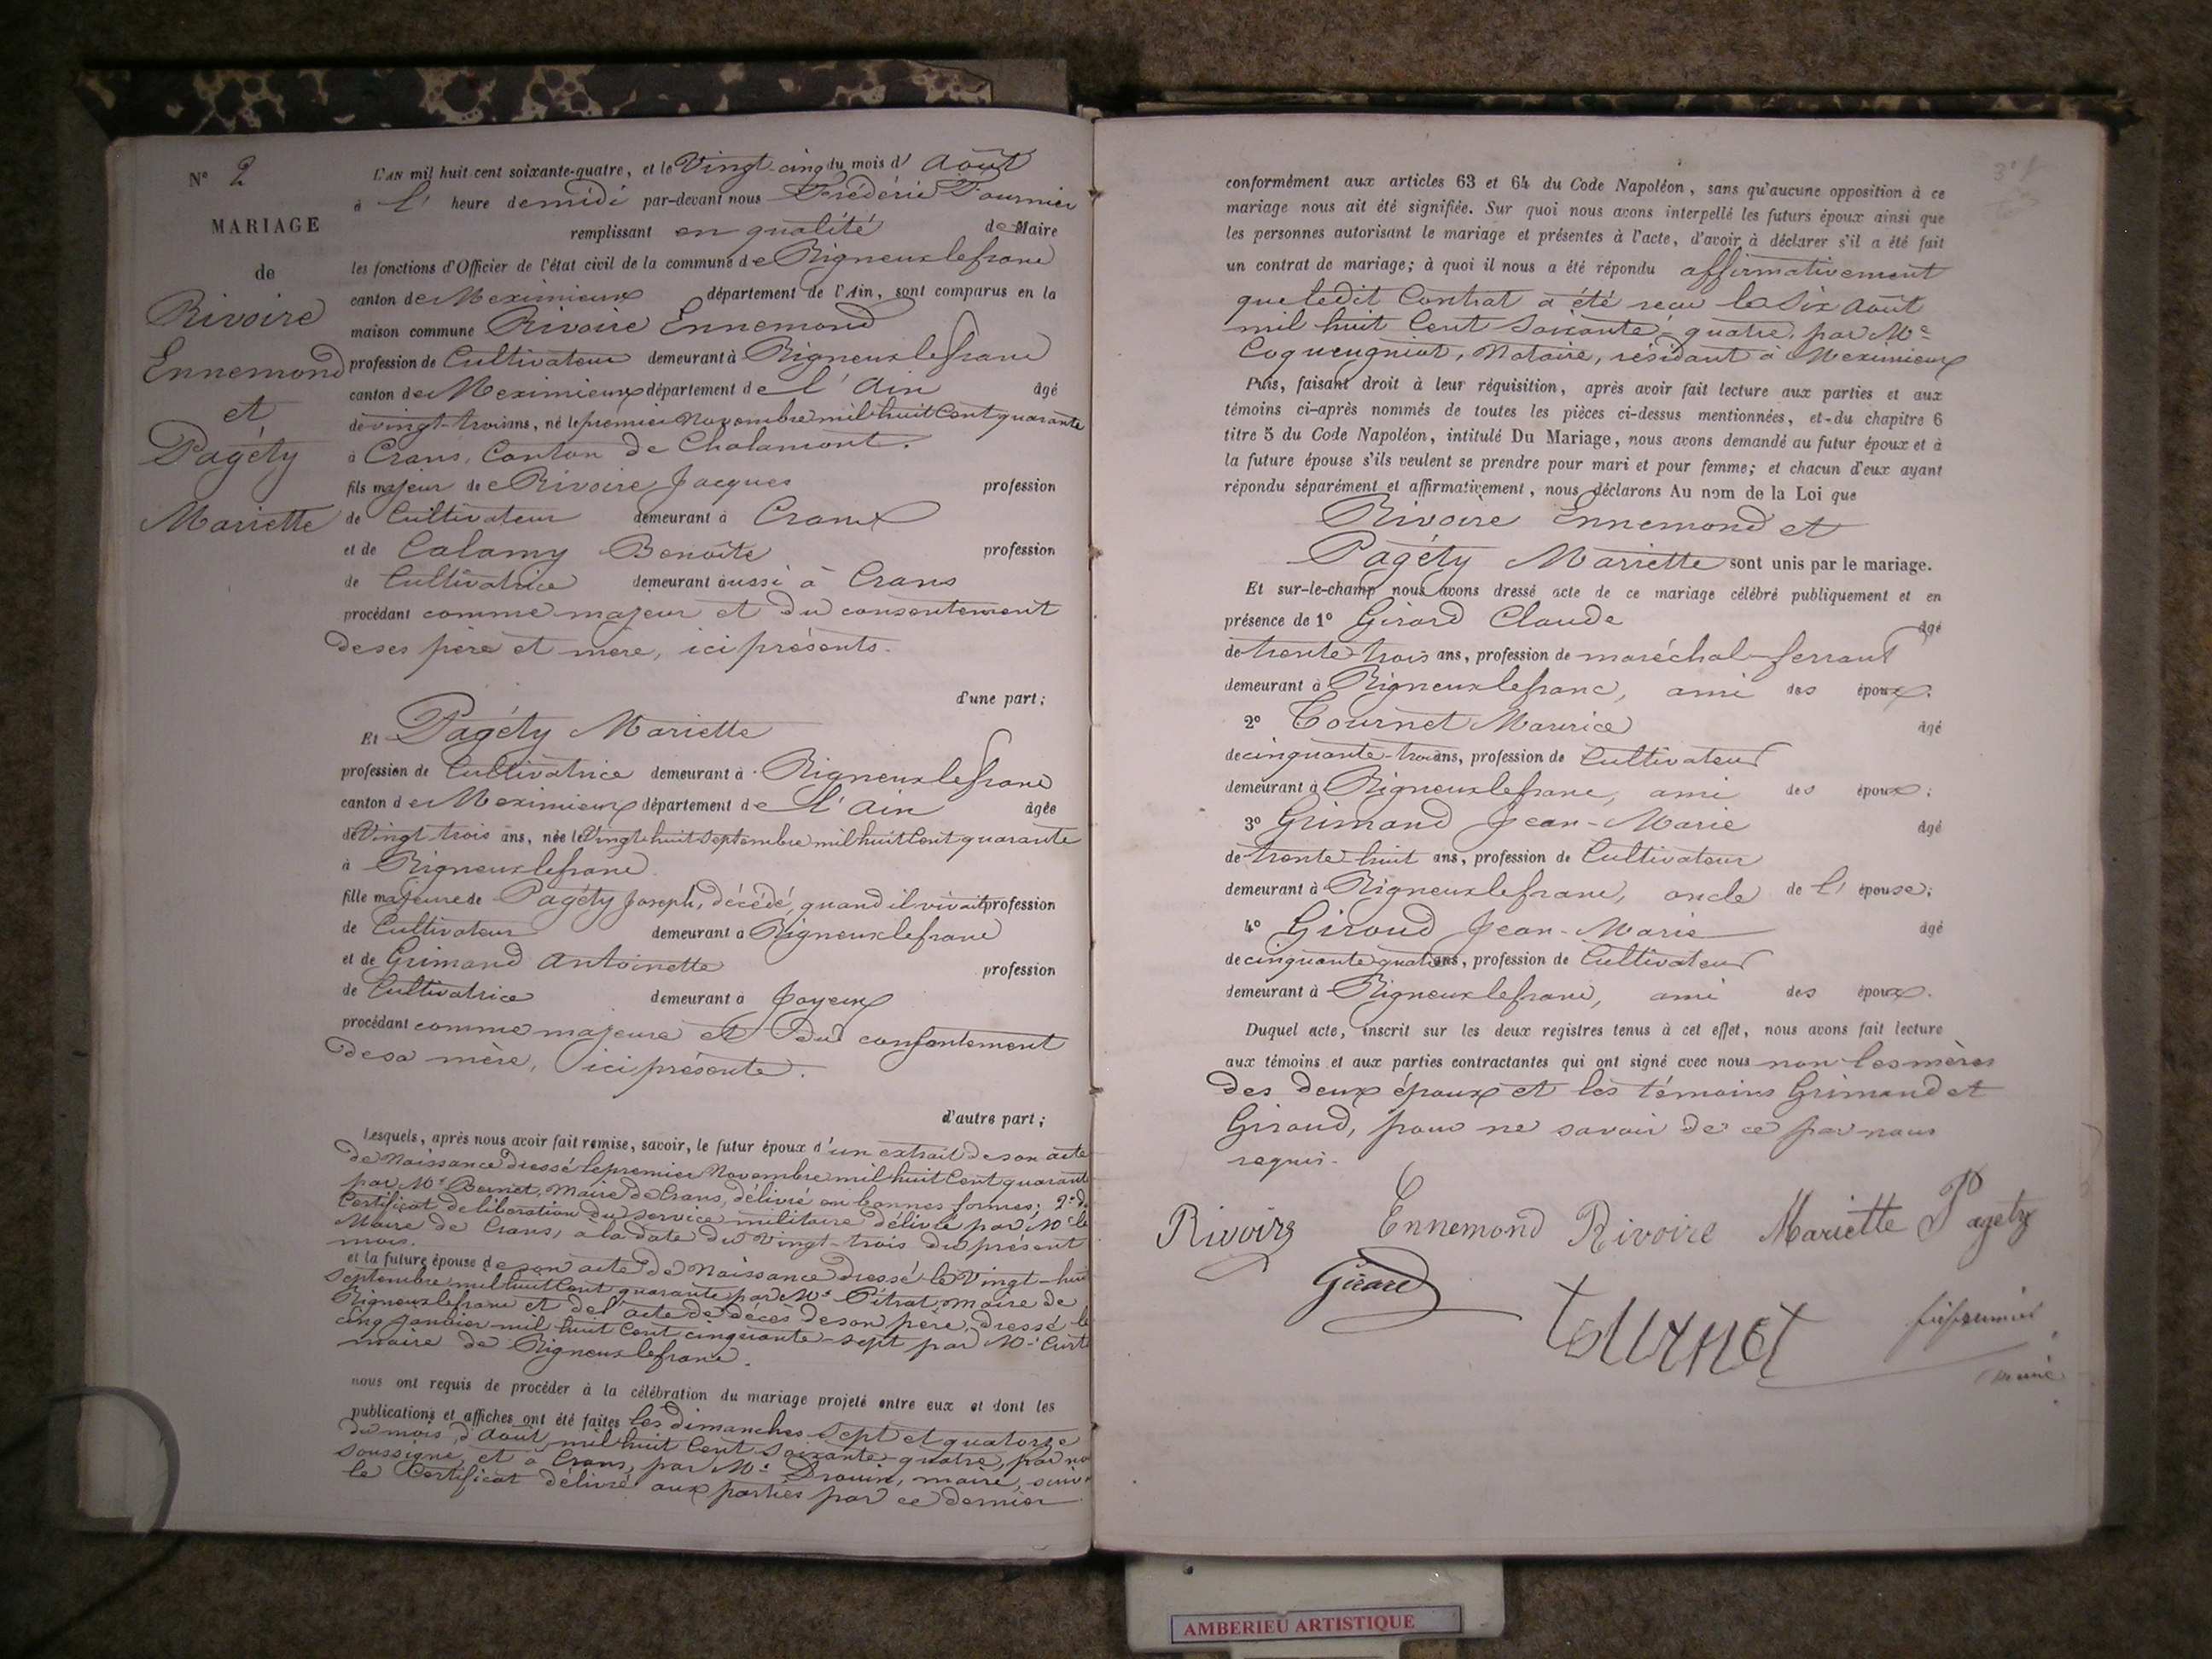 N° 2
MARIAGE
de
Rivoire
Ennemond
et
Pagéty
Mariette
L'AN mil huit cent soixante-quatre, et le Vingt-cinq du mois d' Août
à l' heure de midi par-devant nous Frédéric Fournier
remplissant en qualité de Maire
les fonctions d'Officier de l'état civil de la commune de Rigneuxlefranc
canton de Meximieux département de l'Ain, sont comparus en la
maison commune Rivoire Ennemond
profession de Cultivateur demeurant à Rigneuxlefranc
canton de Meximieux département de l'Ain âgé
de vingt-trois ans, né le premier Novembre mil huit Cent quarante
à Crans, Canton de Chalamont.
fils majeur de Rivoire Jacques profession
de Cultivateur demeurant à Crans
et de Calamy Benoîte profession
de Cultivatrice demeurant aussi à Crans
procédant comme majeur et du consentement
de ses père et mère, ici présents.
d'une part;
Et Pagéty Mariette
profession de Cultivatrice demeurant à Rigneuxlefranc
canton de Meximieux département de l'Ain âgée
de Vingt trois ans, née le Vingt-huit Septembre mil huit Cent quarante
à Rigneuxlefranc.
fille majeure de Pagéty Joseph, décédé, quand il vivait profession
de Cultivateur demeurant à Rigneuxlefranc
et de Grimand Antoinette profession
de Cultivatrice demeurant à Joyeux
procédant comme majeure et du consentement
de sa mère, ici présente.
d'autre part;
Lesquels, après nous avoir fait remise, savoir, le futur époux d'un extrait de son acte
de Naissance dressé le premier Novembre mil huit Cent quarante
par Mr Bernet, Maire de Crans, délivré en bonnes formes; 2° du
Certificat de libération du service militaire délivré par Mr le
Maire de Crans, à la date du Vingt-trois du présent
mois.
et la future épouse de son acte de Naissance dressé le Vingt-huit
Septembre mil huit Cent quarante par Mr Pitrat, maire de
Rigneuxlefranc et de l'acte de décès de son père, dressé le
cinq Janvier mil huit Cent cinquante-sept par Mr
maire de Rigneuxlefranc.
nous ont requis de procéder à la célébration du mariage projeté entre eux et dont les
publications et affiches ont été faites les dimanches sept et quatorze
du mois d'Août mil huit Cent soixante-quatre, par nous
soussigné, et à Crans, par Mr Drouin, maire, suiv
le Certificat délivré aux parties par ce dernier
conformément aux articles 63 et 64 du Code Napoléon, sans qu'aucune opposition à ce
mariage nous ait été signifiée. Sur quoi nous avons interpellé les futurs époux ainsi que
les personnes autorisant le mariage et présentes à l'acte, d'avoir à déclarer s'il a été fait
un contrat de mariage; à quoi il nous a été répondu affirmativement
que ledit Contrat a été reçu le Six Août
mil huit Cent Soixante-quatre, par Me
Coqueugniot, Notaire, résidant à Meximieux
Puis, faisant droit à leur réquisition, après avoir fait lecture aux parties et aux
témoins ci-après nommés de toutes les pièces ci-dessus mentionnées, et du chapitre 6
titre 5 du Code Napoléon, intitulé Du Mariage, nous avons demandé au futur époux et à
la future épouse s'ils veulent se prendre pour mari et pour femme; et chacun d'eux ayant
répondu séparément et affirmativement, nous déclarons Au nom de la Loi que
Rivoire Ennemond et
Pagéty Mariette sont unis par le mariage.
Et sur-le-champ nous avons dressé acte de ce mariage célébré publiquement et en
présence de 1° Girard Claude âgé
de trente-trois ans, profession de maréchal-ferrant
demeurant à Rigneuxlefranc, ami des époux;
2° Tournet Maurice âgé
de cinquante-trois ans, profession de Cultivateur
demeurant à Rigneuxlefranc, ami des époux;
3° Grimand Jean-Marie âgé
de trente-huit ans, profession de Cultivateur
demeurant à Rigneuxlefranc, oncle de l' épouse;
4° Giroud Jean-Marie âgé
de cinquante quatre ans, profession de Cultivateur
demeurant à Rigneuxlefranc, ami des époux.
Duquel acte, inscrit sur les deux registres tenus à cet effet, nous avons fait lecture
aux témoins et aux parties contractantes qui ont signé avec nous non les mères
des deux époux et les témoins Grimand et
Giroud, pour ne savoir de ce par nous
requis.
Rivoire Ennemond Rivoire Mariette Pagety
Girard
tournet
maire
AMBERIEU ARTISTIQUE